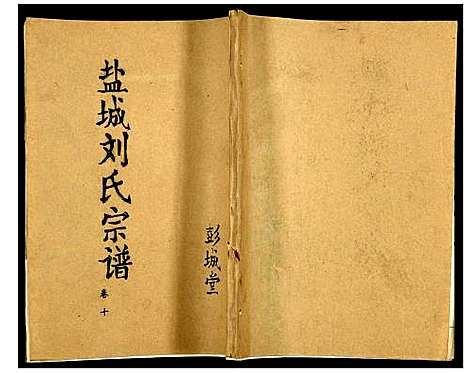 盐城刘氏宗谱
卷十
彭城堂